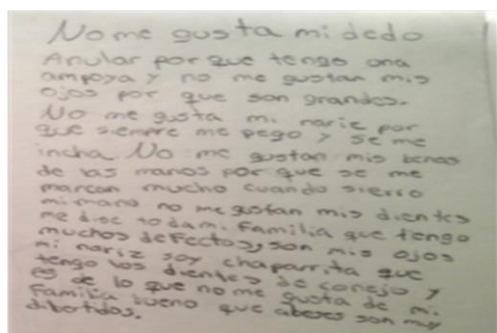 No me gusta mi dedo
Anular por que tengo una
ampoya y no me gustan mis
ojos por que son grandes.
No me gusta mi nariz por
que siempre me pego y se me
incha No me gustan mis benas
de las manos por que se me
marcan mucho cuando sierro
mi mano no me gustan mis dientes
me dise toda mi Familia que tengo
muchos defectos, son mis ojos
mi nariz soy chaparrita que
tengo los dientes de conejo y
es de lo que no me gusta de mi
Familia bueno que abeses son muy
dibertidos.